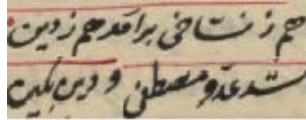 هم ز نساخی برآمد هم ز دین
شد عدو مصطفی و دین بکین